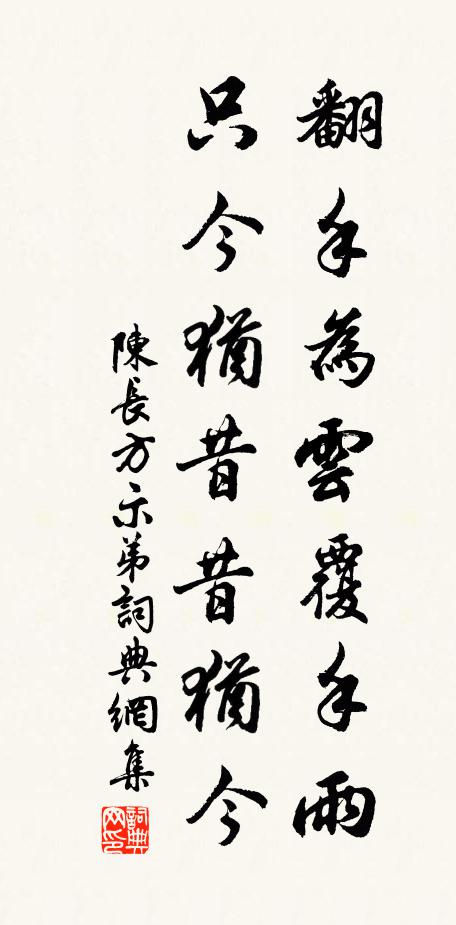 翻手為雲覆手雨
只今猶昔昔猶今
陳長方示弟詞典網集
詞典網印